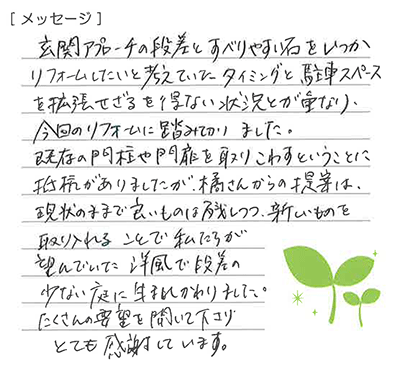 [ メッセージ ]
玄関アプローチの段差と すべりやすい石をいつか
リフォームしたいと考えていたタイミングと 駐車スペース
を拡張せざるを得ない状況とが重なり、
今回のリフォームに踏みきりました。
既存の門柱や門扉を取りこわすということに
抵抗がありましたが、橘さんからの提案は、
現状のままで良いものは残しつつ、新しいものを
取り入れる ことで 私たちが
望んでいた 洋風で段差の
少ない庭に 生まれかわりました。
たくさんの要望を聞いて下さり
とても 感謝しています。